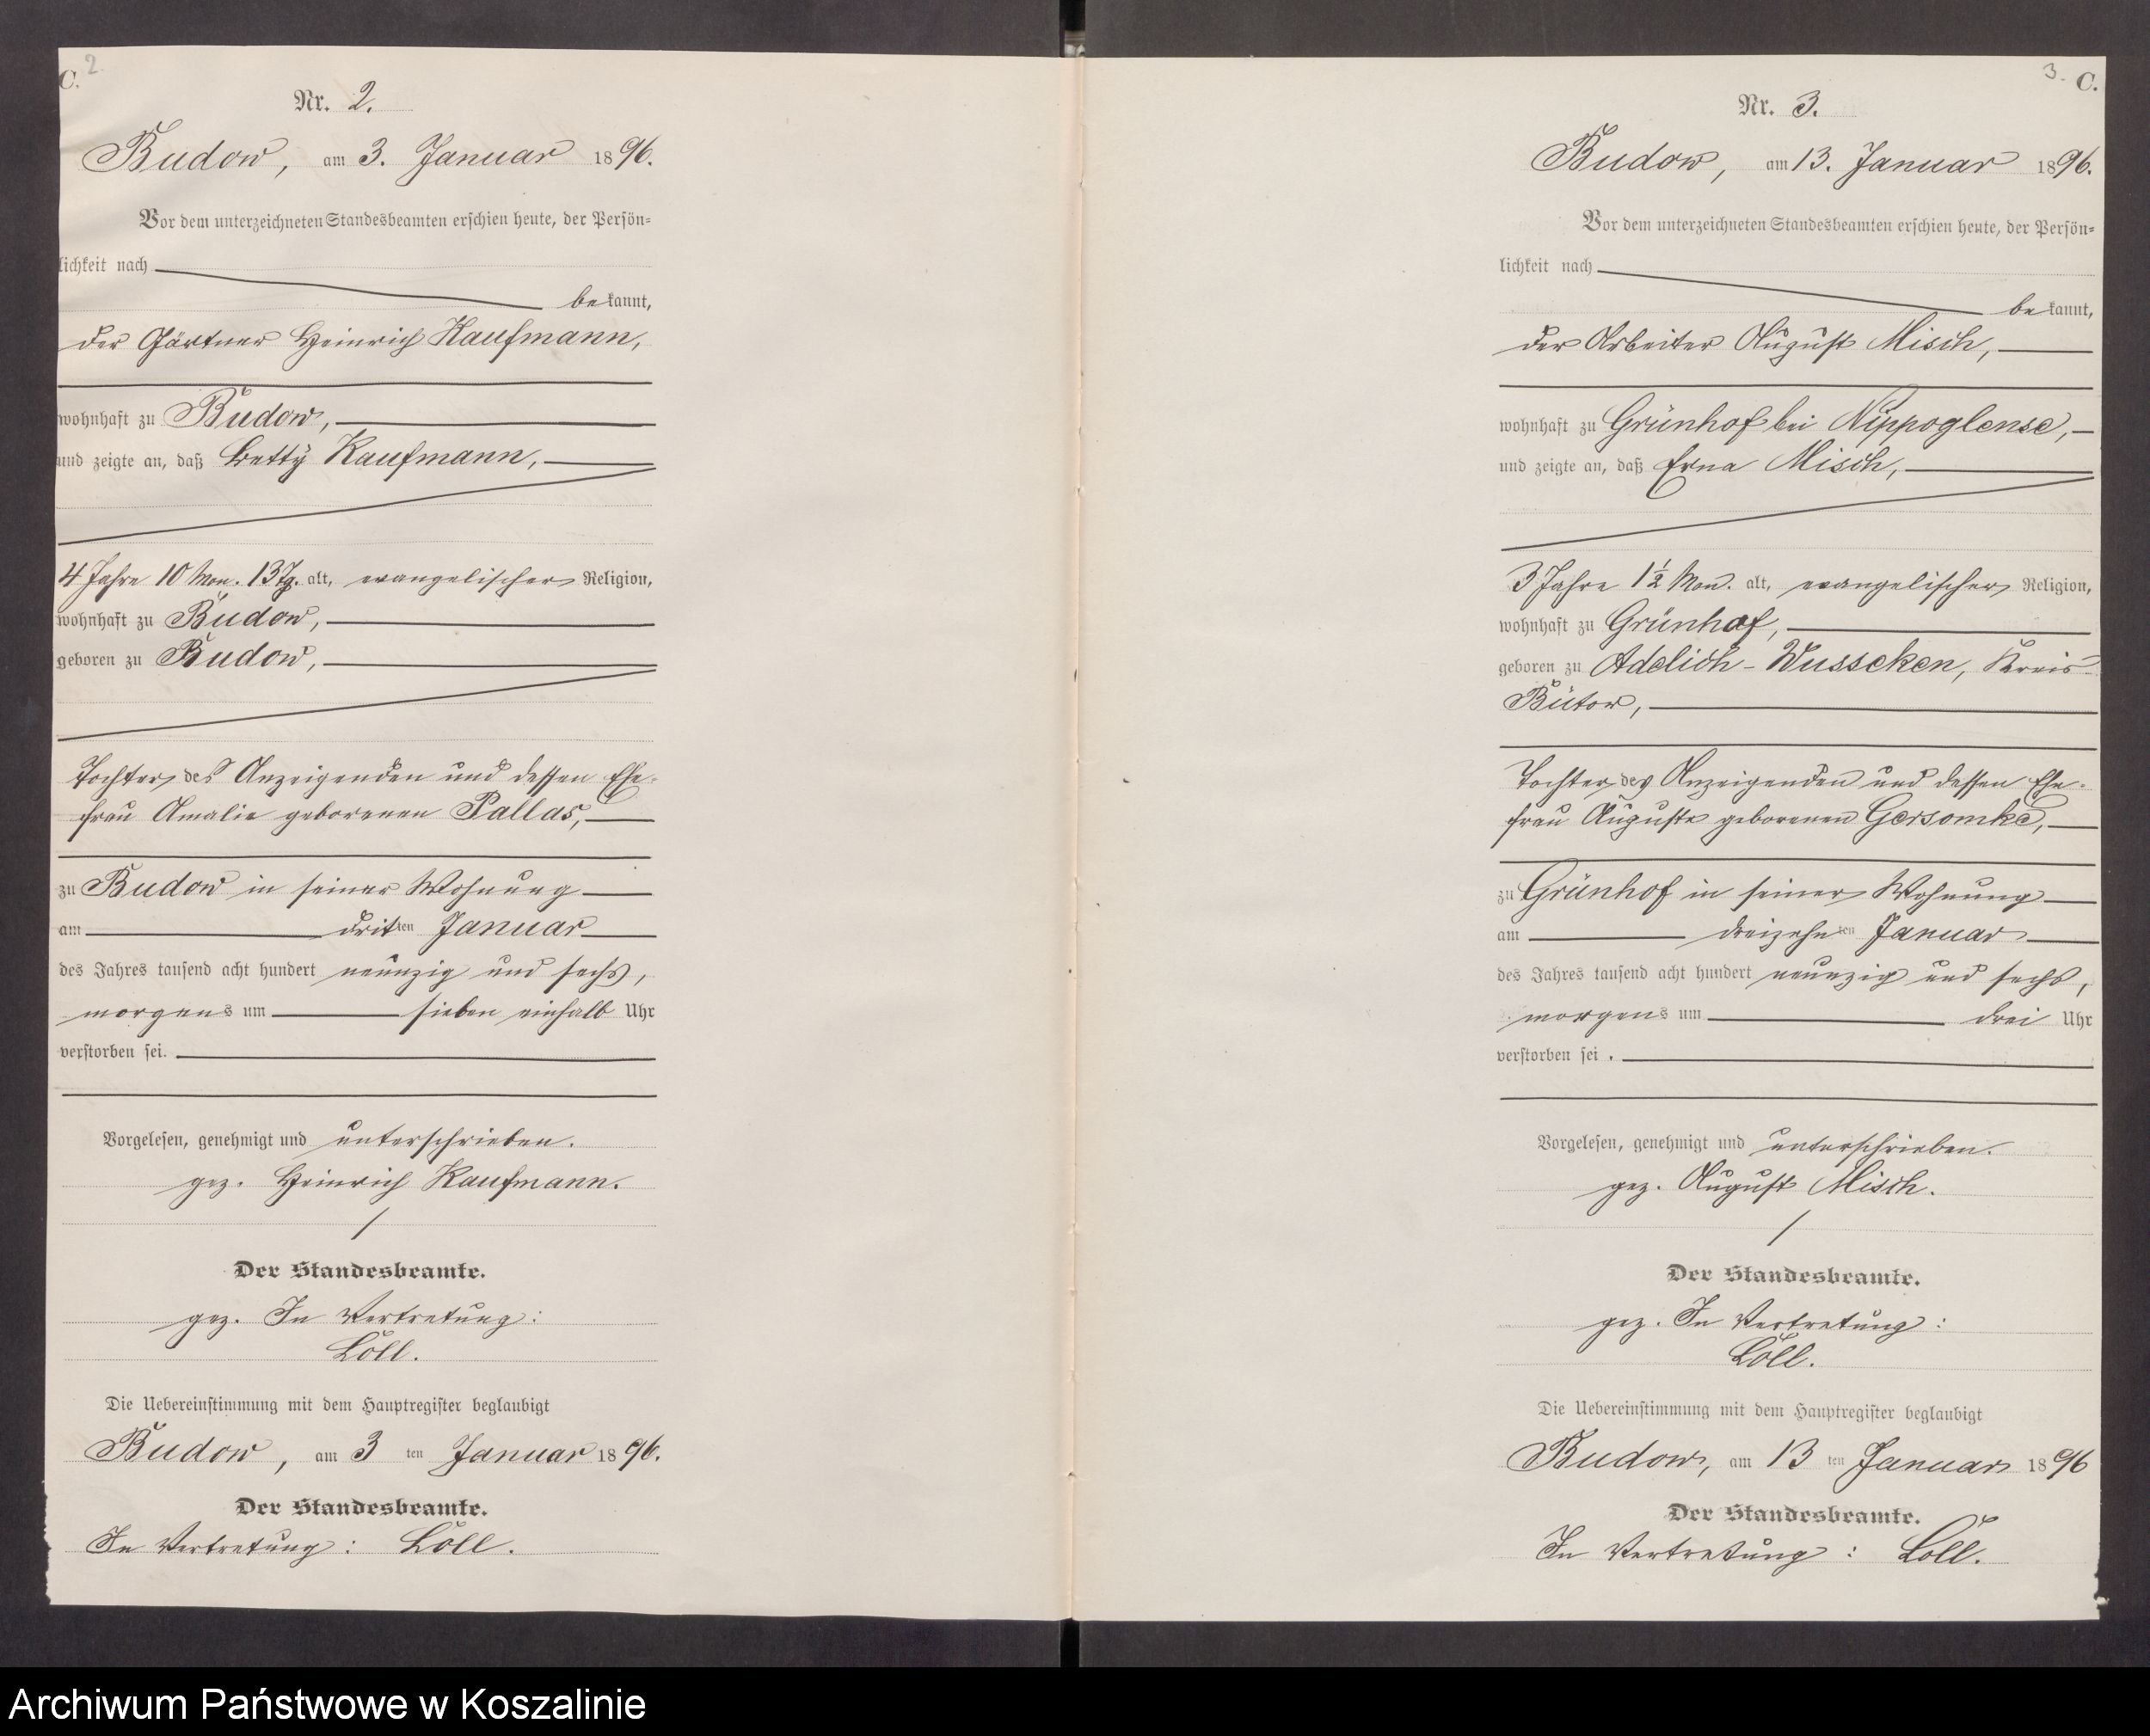 C. 2
Nr. 2.
Budow, am 3. Januar 1896.
Vor dem unterzeichneten Standesbeamten erschien heute, der Persön-
lichkeit nach
bekannt,
der Gärtner Heinrich Kaufmann,
wohnhaft zu Budow,
und zeigte an, daß Betty Kaufmann,
4 Jahre 10 Mon. 13 Tg. alt, evangelischer Religion,
wohnhaft zu Budow,
geboren zu Budow,
Tochter des Anzeigenden und dessen Ehe-
frau Amalie geborenen Pallas,
zu Budow in seiner Wohnung
am dritten Januar
des Jahres tausend acht hundert neunzig und sechs,
morgens um sieben einhalb Uhr
verstorben sei.
Vorgelesen, genehmigt und unterschrieben.
gez. Heinrich Kaufmann.
Der Standesbeamte.
gez. In Vertretung:
Löll.
Die Uebereinstimmung mit dem Hauptregister beglaubigt
Budow, am 3 ten Januar 1896.
Der Standesbeamte.
In Vertretung: Löll.
3. C.
Nr. 3.
Budow, am 13. Januar 1896.
Vor dem unterzeichneten Standesbeamten erschien heute, der Persön-
lichkeit nach
bekannt,
der Arbeiter August Misch,
wohnhaft zu Grünhof bei Nippoglense,
und zeigte an, daß Erna Misch,
3 Jahre 1½ Mon. alt, evangelischer Religion,
wohnhaft zu Grünhof,
geboren zu Adelich-Wusseken, Kreis
Bütow,
Tochter des Anzeigenden und dessen Ehe-
frau Auguste geborenen Gersomke,
zu Grünhof in seiner Wohnung
am dreizehnten Januar
des Jahres tausend acht hundert neunzig und sechs,
morgens um drei Uhr
verstorben sei.
Vorgelesen, genehmigt und unterschrieben.
gez. August Misch.
Der Standesbeamte.
gez. In Vertretung:
Löll.
Die Uebereinstimmung mit dem Hauptregister beglaubigt
Budow, am 13 ten Januar 1896
Der Standesbeamte.
In Vertretung: Löll.
Archiwum Państwowe w Koszalinie